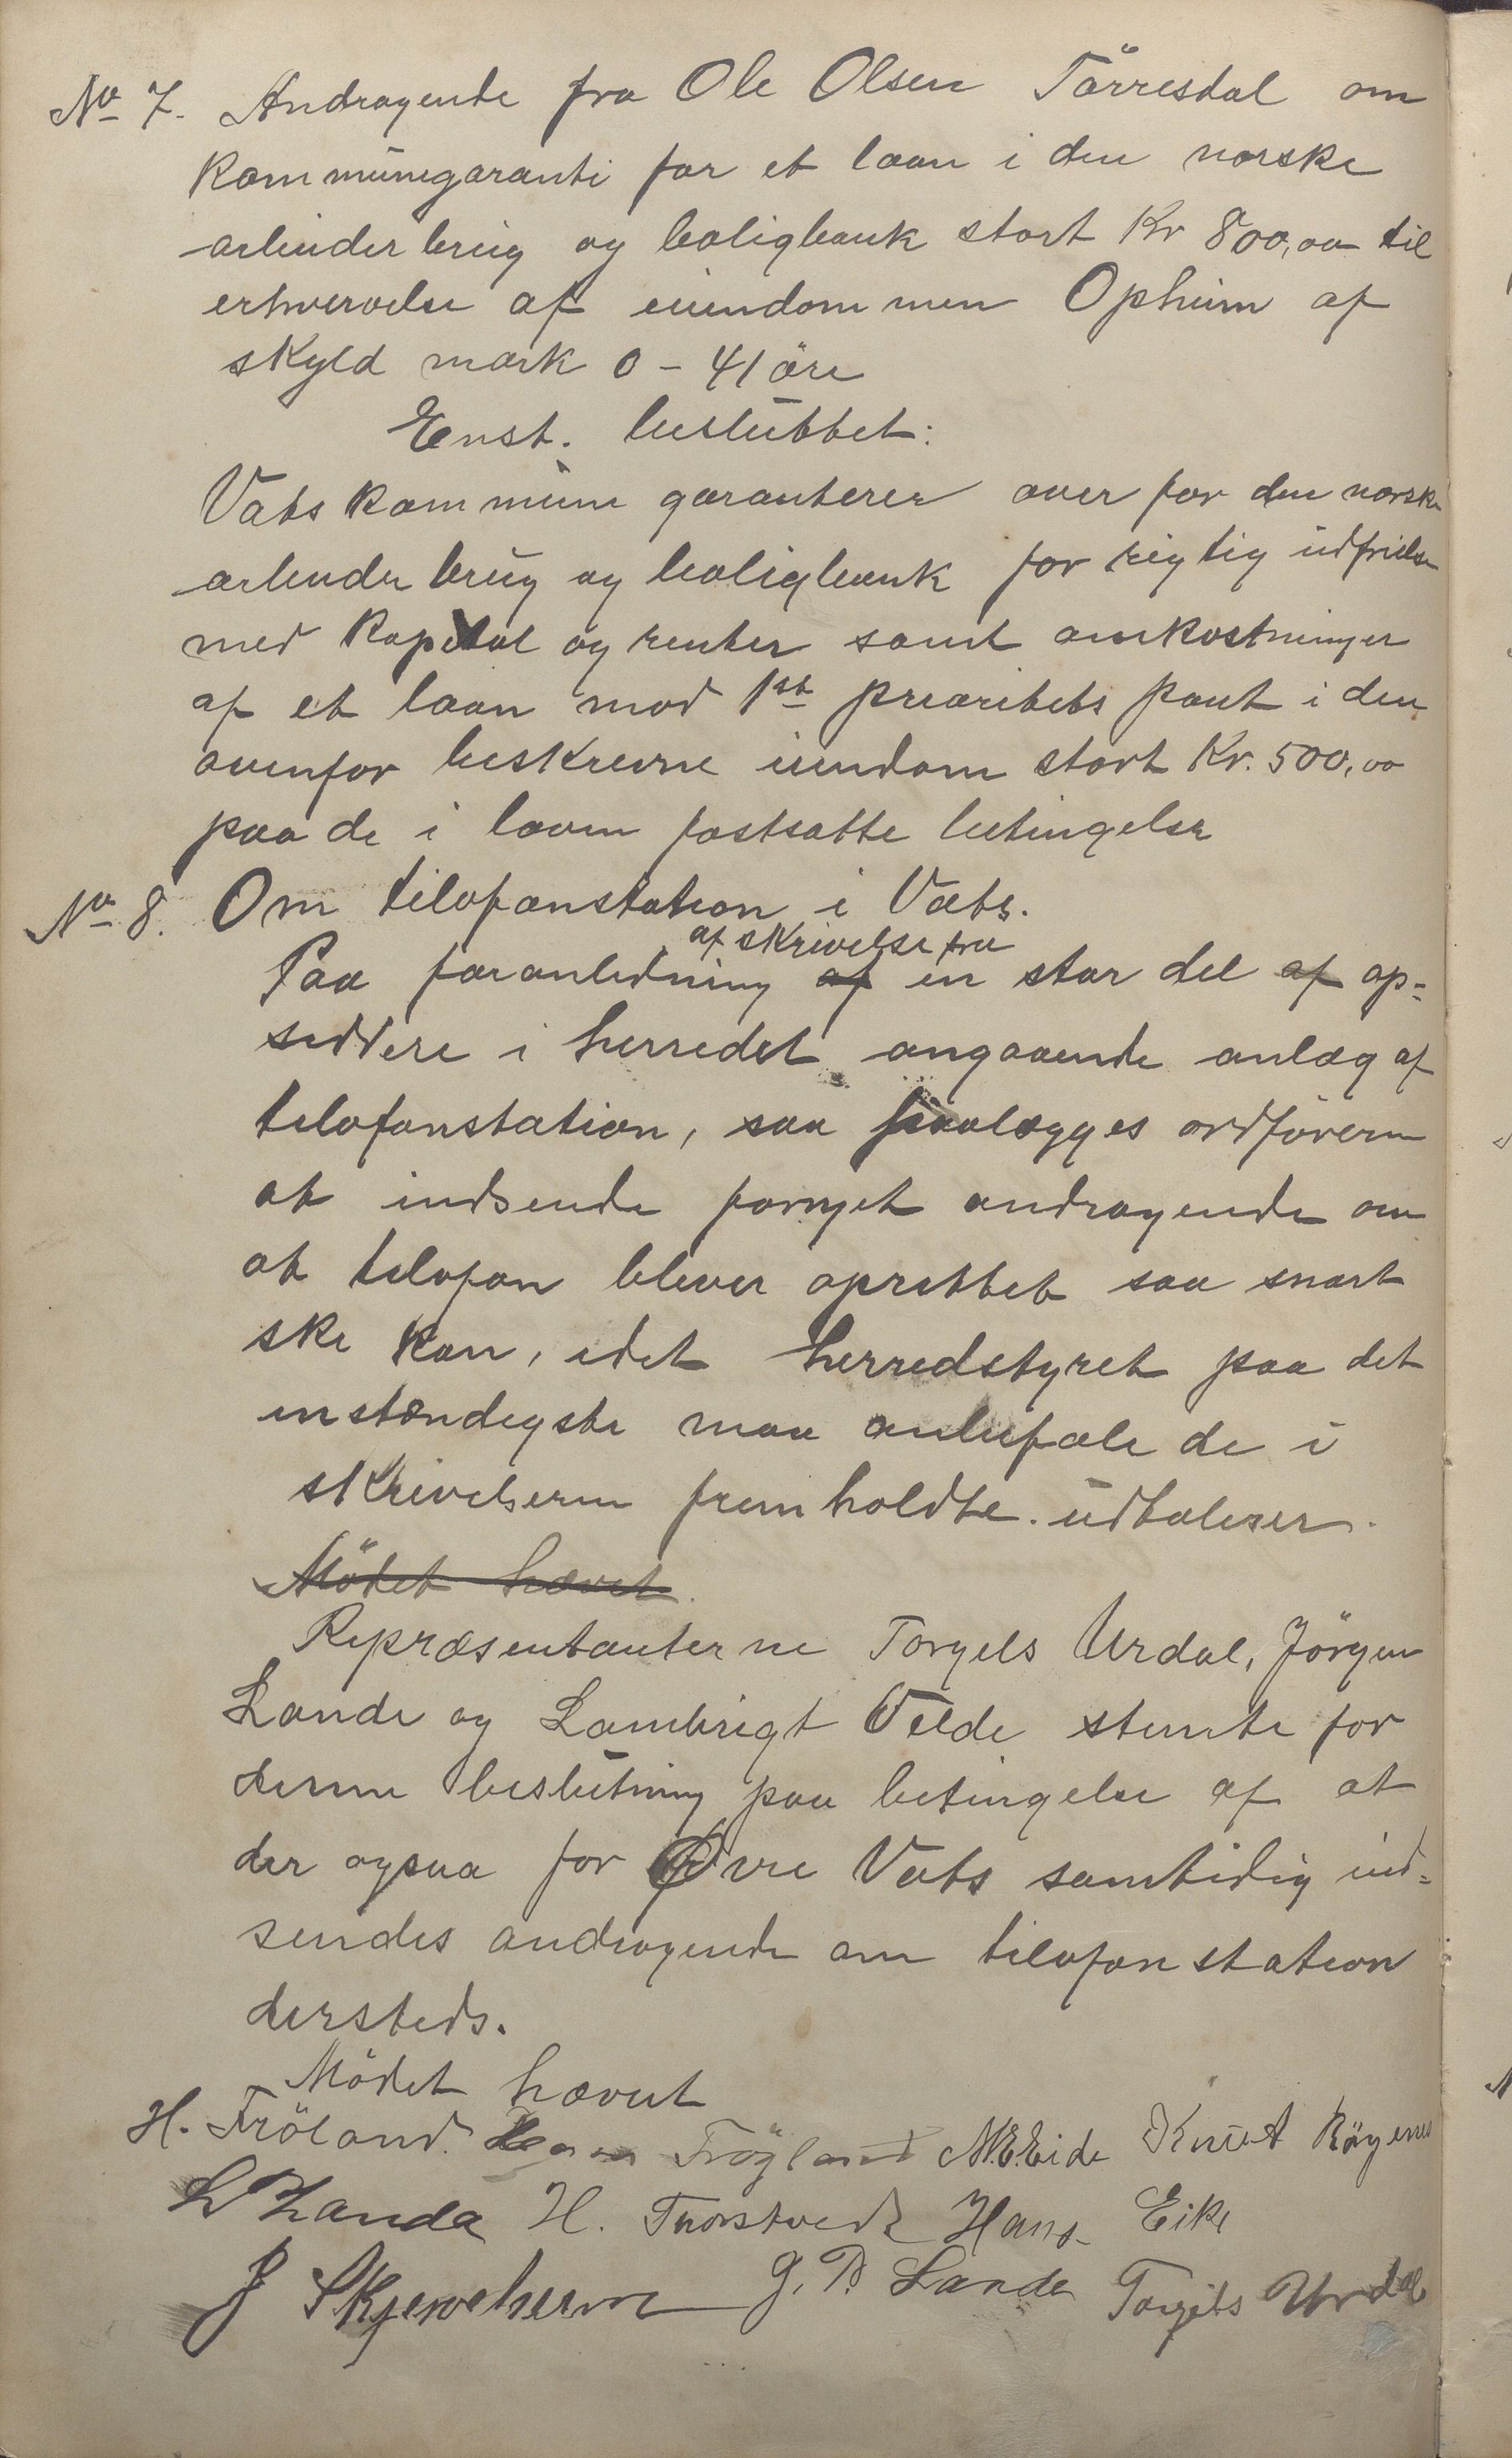 No 7. Andragende fra Ole Olsen Törresdal om
kommunegaranti for et laan i den norske
arbeider brug og boligbank stort Kr 800,00 til
erhvervelse af eiendommen Opheim af
skyld mark 0 – 41 öre
Enst. besluttet:
Vats kommune garanterer over for den norske
arbeider brug og boligbank for rigtig udfrielse
med kapital og renter samt omkostninger
af et laan mod 1ste prioritets pant i den
ovenfor beskrevne eiendom stort Kr. 500,00
paa de i loven fastsatte betingelser
No 8. Om telefonstation i Vats.
af skrivelse fra
Paa foranledning af en stor del af op-
siddere i herredet angaaende anlæg af
telefonstation, saa paalægges ordföreren
at indsende fornyet andragende om
at telefon blever oprettet saa snart
ske kan, idet herredstyret paa det
instændigste maa anbefale de i
skrivelsern fremholdte udtaleser.
Mödet hævet.
Repræsentanterne Torgels Urdal, Jörgen
Lande og Lambrigt Velde stemte for
denne beslutning paa betingelse af at
der ogsaa for Øvre Vats samtidig ind-
sendes andragende om telefonstation
dersteds.
Mödet hævet
H. Fröland. Hans Frögland N.E. Eide Knut Röyenes
L Landa H. Thorstvedt Hans Eike
J Skjeveheim J. P. Lande Torgils Urdal